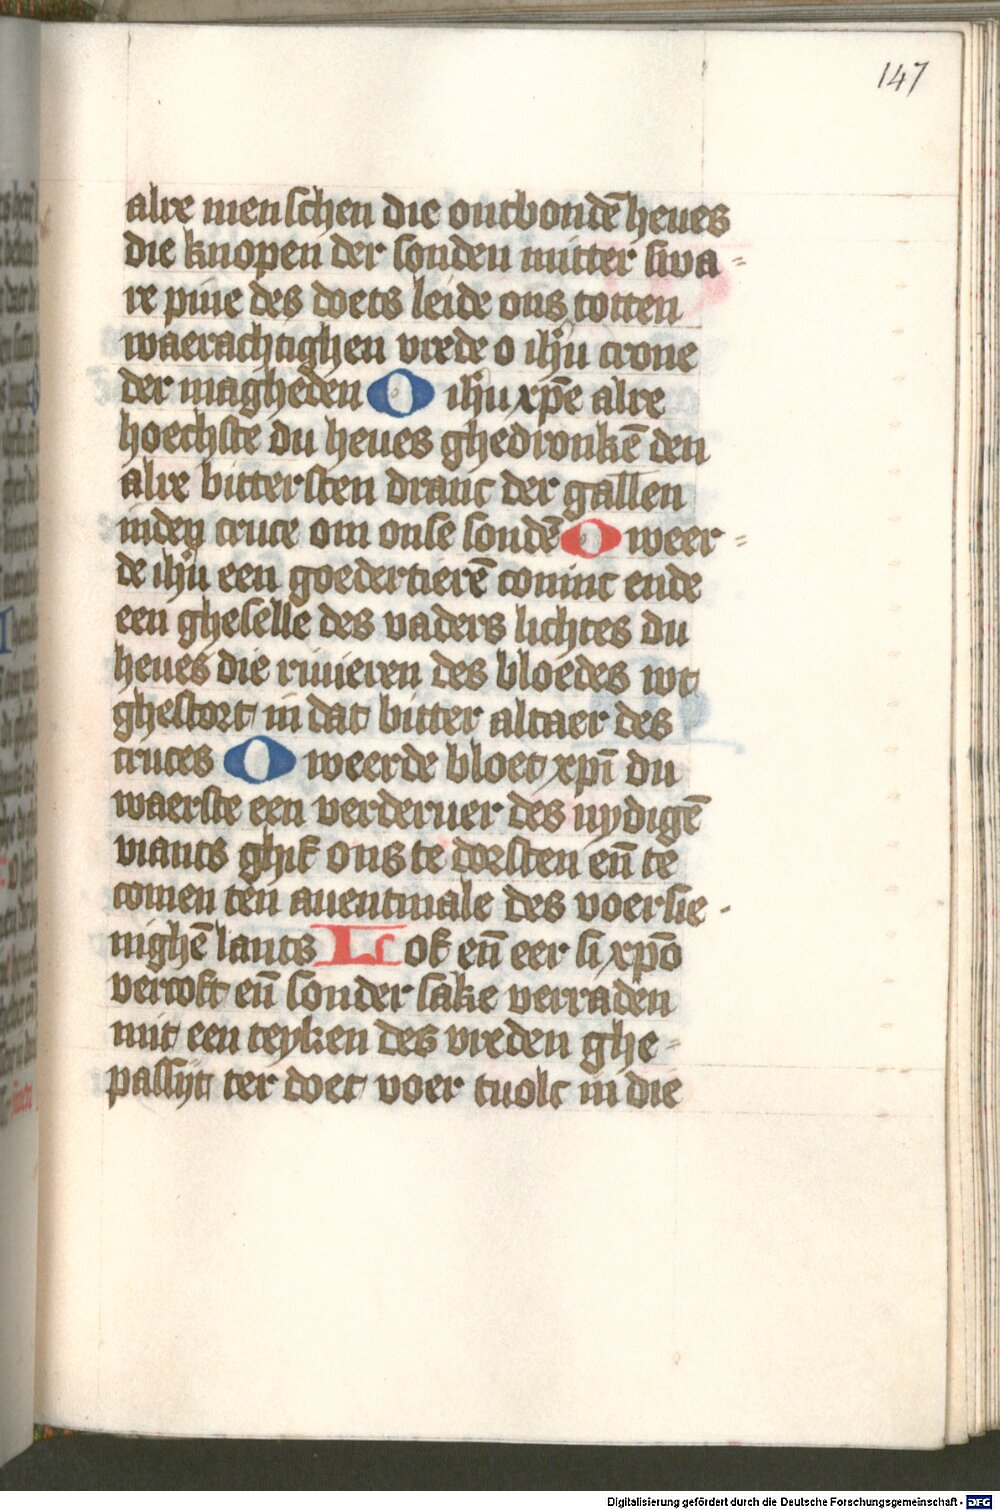 147
alre menschen die ontbondē heues
die knopen der sonden mitter swa-
re pine des doets leide ons totten
waerachtighen vrede o ihu crone
der magheden O ihu xpē alre
hoechste du heues ghedronkē den
alre bittersten dranc der gallen
inden cruce om onse sondē O weer-
de ihu een goedertierē coninc ende
een gheselle des vaders lichtes du
heues die riuieren des bloedes wt
ghestort in dat bitter altaer des
cruces O weerde bloet xpī du
waerste een verderuer des nydigē
viants ghif ons te dorsten eñ te
comen ten auentmale des voersie-
nighē lants Lof eñ eer si xpō
vercoft eñ sonder sake verraden
mit een teyken des vreden ghe-
passijt ter doet voer tuolc in die
Digitalisierung gefördert durch die Deutsche Forschungsgemeinschaft - DFG